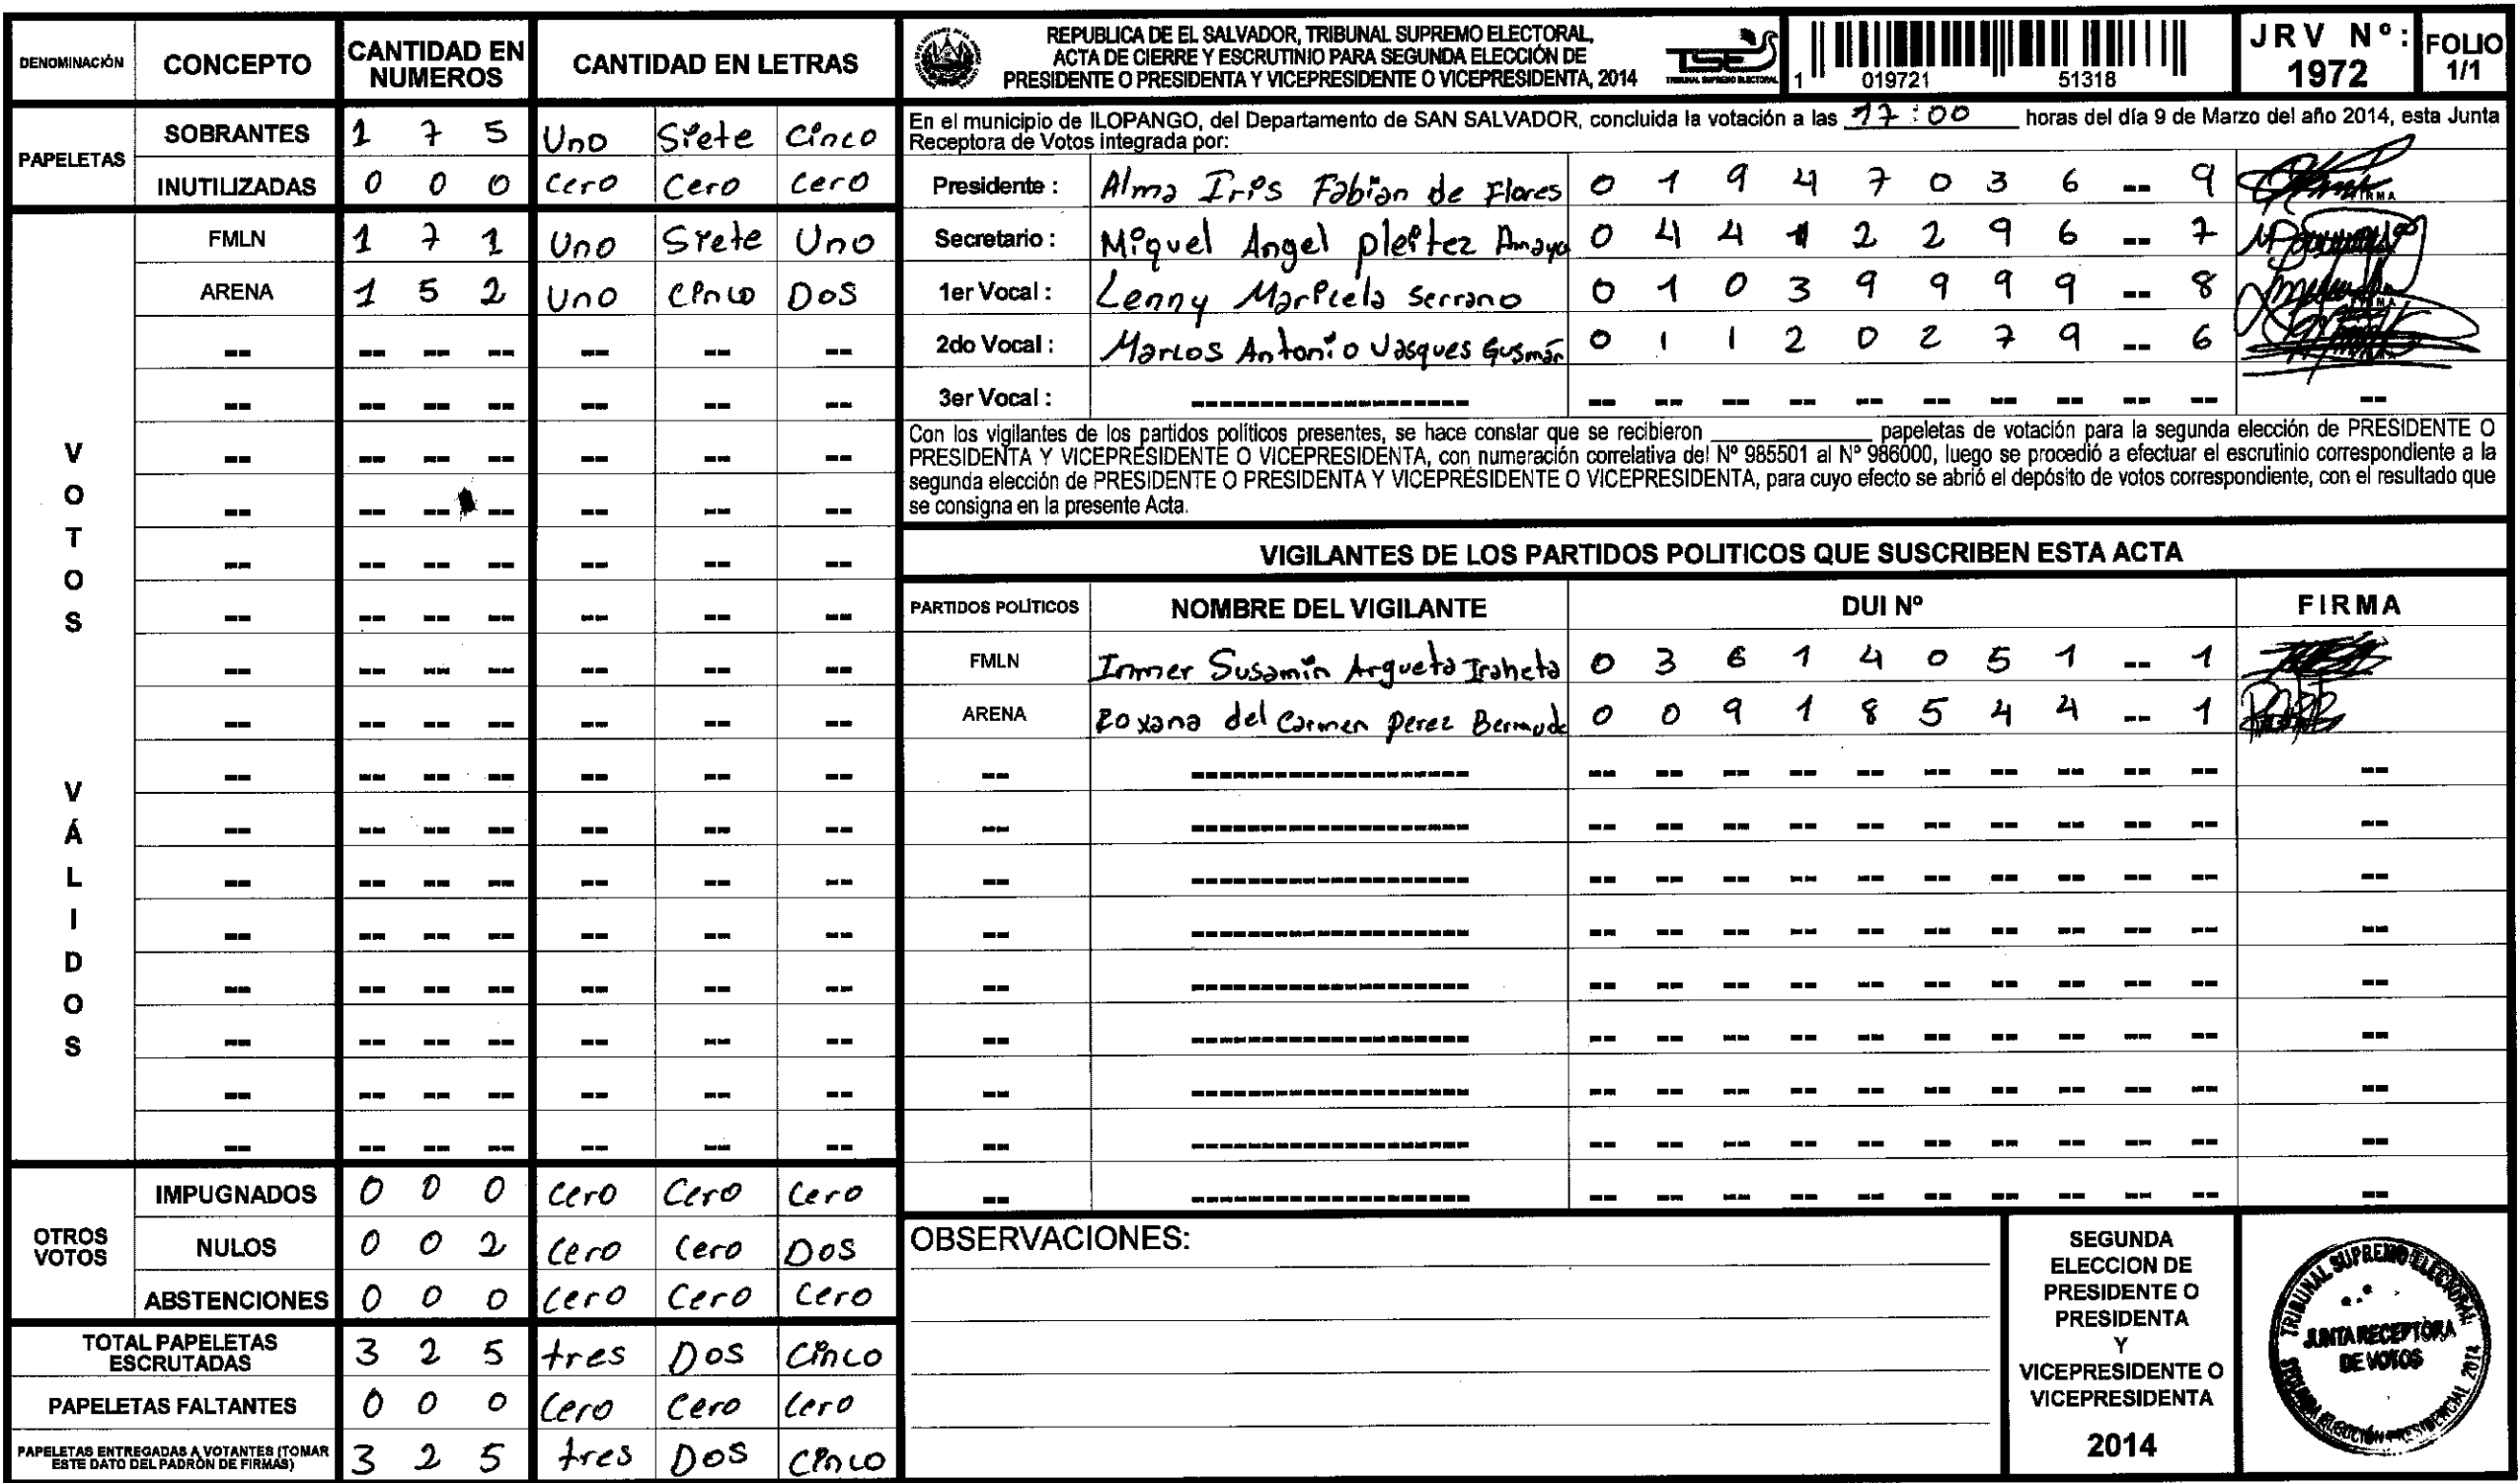 DENOMINACIÓN CONCEPTO CANTIDAD EN NUMEROS CANTIDAD EN LETRAS
PAPELETAS
SOBRANTES 1 7 5 Uno Siete Cinco
INUTILIZADAS 0 0 0 Cero Cero Cero
VOTOS VÁLIDOS
FMLN 1 7 1 Uno Siete Uno
ARENA 1 5 2 Uno Cinco Dos
OTROS VOTOS
IMPUGNADOS 0 0 0 Cero Cero Cero
NULOS 0 0 2 Cero Cero Dos
ABSTENCIONES 0 0 0 Cero Cero Cero
TOTAL PAPELETAS ESCRUTADAS 3 2 5 tres Dos Cinco
PAPELETAS FALTANTES 0 0 0 Cero Cero Cero
PAPELETAS ENTREGADAS A VOTANTES (TOMAR ESTE DATO DEL PADRÓN DE FIRMAS) 3 2 5 tres Dos Cinco
REPUBLICA DE EL SALVADOR, TRIBUNAL SUPREMO ELECTORAL,
ACTA DE CIERRE Y ESCRUTINIO PARA SEGUNDA ELECCIÓN DE
PRESIDENTE O PRESIDENTA Y VICEPRESIDENTE O VICEPRESIDENTA, 2014
TSE
TRIBUNAL SUPREMO ELECTORAL
1 019721 51318
JRV Nº: 1972
FOLIO 1/1
En el municipio de ILOPANGO, del Departamento de SAN SALVADOR, concluida la votación a las 17:00 horas del día 9 de Marzo del año 2014, esta Junta
Receptora de Votos integrada por:
Presidente: Alma Iris Fabian de Flores 0 1 9 4 7 0 3 6 -- 9
Secretario: Miguel Angel pleitez Amaya 0 4 4 1 2 2 9 6 -- 7
1er Vocal: Lenny Maricela Serrano 0 1 0 3 9 9 9 9 -- 8
2do Vocal: Marcos Antonio Vasques Gusmán 0 1 1 2 0 2 7 9 -- 6
3er Vocal:
Con los vigilantes de los partidos políticos presentes, se hace constar que se recibieron papeletas de votación para la segunda elección de PRESIDENTE O
PRESIDENTA Y VICEPRESIDENTE O VICEPRESIDENTA, con numeración correlativa del Nº 985501 al Nº 986000, luego se procedió a efectuar el escrutinio correspondiente a la
segunda elección de PRESIDENTE O PRESIDENTA Y VICEPRESIDENTE O VICEPRESIDENTA, para cuyo efecto se abrió el depósito de votos correspondiente, con el resultado que
se consigna en la presente Acta.
VIGILANTES DE LOS PARTIDOS POLITICOS QUE SUSCRIBEN ESTA ACTA
PARTIDOS POLÍTICOS NOMBRE DEL VIGILANTE DUI Nº FIRMA
FMLN Irmer Susamin Argueta Iraheta 0 3 6 1 4 0 5 1 -- 1
ARENA Roxana del Carmen Perez Bermude 0 0 9 1 8 5 4 4 -- 1
OBSERVACIONES:
SEGUNDA
ELECCION DE
PRESIDENTE O
PRESIDENTA
Y
VICEPRESIDENTE O
VICEPRESIDENTA
2014
TRIBUNAL SUPREMO ELECTORAL
JUNTA RECEPTORA
DE VOTOS
SEGUNDA ELECCIÓN PRESIDENCIAL 2014